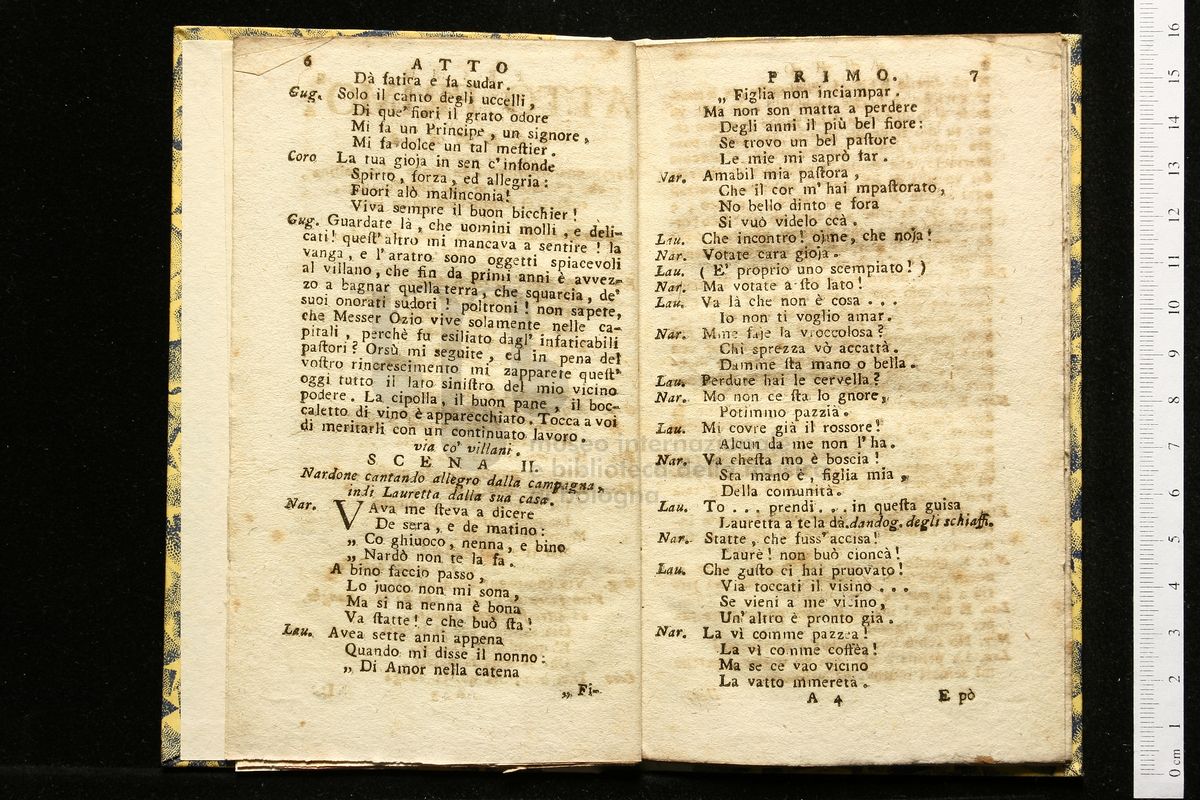 6
ATTO
Dà fatica e fa sudar.
Gug. Solo il canto degli uccelli,
Di que' fiori il grato odore
Mi fa un Principe, un signore,
Mi fa dolce un tal meſtier.
Coro La tua gioja in sen c'infonde
Spirto, forza, ed allegria:
Fuori alò malinconia!
Viva sempre il buon bicchier!
Gug. Guardate là, che uomini molli, e deli-
cati! queſt'altro mi mancava a sentire! la
vanga, e l'aratro sono oggetti spiacevoli
al villano, che fin da primi anni è avvez-
zo a bagnar quella terra, che squarcia, de'
suoi onorati sudori! poltroni! non sapete,
che Messer Ozio vive solamente nelle ca-
pitali, perchè fu esiliato dagl' infaticabili
paſtori? Orsù mi seguite, ed in pena del
voſtro rincrescimento mi zapparete queſt'
oggi tutto il lato siniſtro del mio vicino
podere. La cipolla, il buon pane, il boc-
caletto di vino è apparecchiato. Tocca a voi
di meritarli con un continuato lavoro.
via co' villani.
SCENA II.
Nardone cantando allegro dalla campagna,
indi Lauretta dalla sua casa.
Nar. VAva me ſteva a dicere
De sera, e de matino:
„ Co ghiuoco, nenna, e bino
„ Nardò non te la fa.
A bino faccio passo,
Lo juoco non mi sona,
Ma si na nenna è bona
Va ſtatte! e che buò ſta!
Lau. Avea sette anni appena
Quando mi disse il nonno:
„ Di Amor nella catena
„ Fi-
PRIMO. 7
„ Figlia non inciampar.
Ma non son matta a perdere
Degli anni il più bel fiore:
Se trovo un bel paſtore
Le mie mi saprò far.
Nar. Amabil mia paſtora,
Che il cor m' hai mpaſtorato,
No bello dinto e fora
Si vuò videlo ccà.
Lau. Che incontro! ojme, che noja!
Nar. Votate cara gioja.
Lau. ( E' proprio uno scempiato! )
Nar. Ma votate a ſto lato!
Lau. Va là che non è cosa ...
Io non ti voglio amar.
Nar. Mme faje la vroccolosa?
Chi sprezza vò accattà.
Damme ſta mano o bella.
Lau. Perdute hai le cervella?
Nar. Mo non ce ſta lo gnore,
Potimmo pazzià.
Lau. Mi covre già il rossore!
Alcun da me non l' ha.
Nar. Va cheſta mo è boscia!
Sta mano è, figlia mia,
Della comunità.
Lau. To ... prendi... in queſta guisa
Lauretta a te la dà. dandog. degli schiaffi.
Nar. Statte, che fuss' accisa!
Laurè! non buò cioncà!
Lau. Che guſto ci hai pruovato!
Via toccati il visino ...
Se vieni a me vicino,
Un' altro è pronto già.
Nar. La vì comme pazzea!
La vì comme coffèa!
Ma se ce vao vicino
La vatto mmeretà.
A 4
E pò
museo internazionale
e biblioteca della musica
bologna
16
15
14
13
12
11
10
9
8
7
6
5
4
3
2
1
0 cm